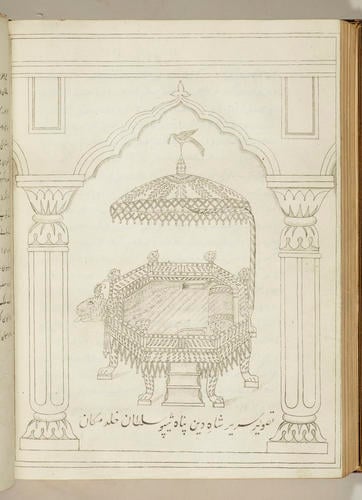 تصویر سریر شاہ دین پناہ ٹیپو سلطان خلد مکان